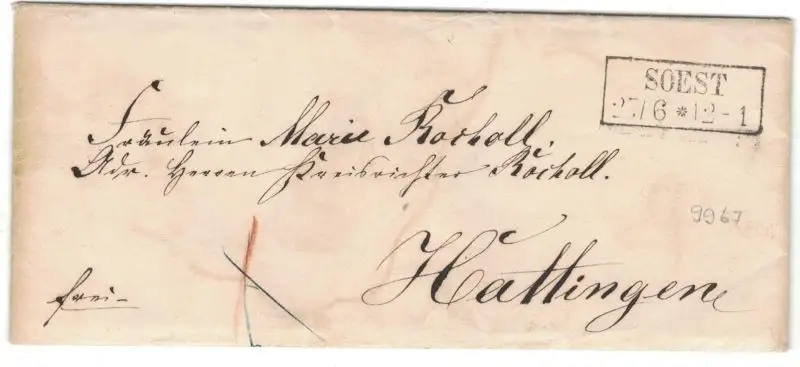 SOEST
27/6 * 12-1
Fräulein Marie Rocholl.
Adr. Herren Kreisrichter Rocholl.
9967
Hattingen
frei